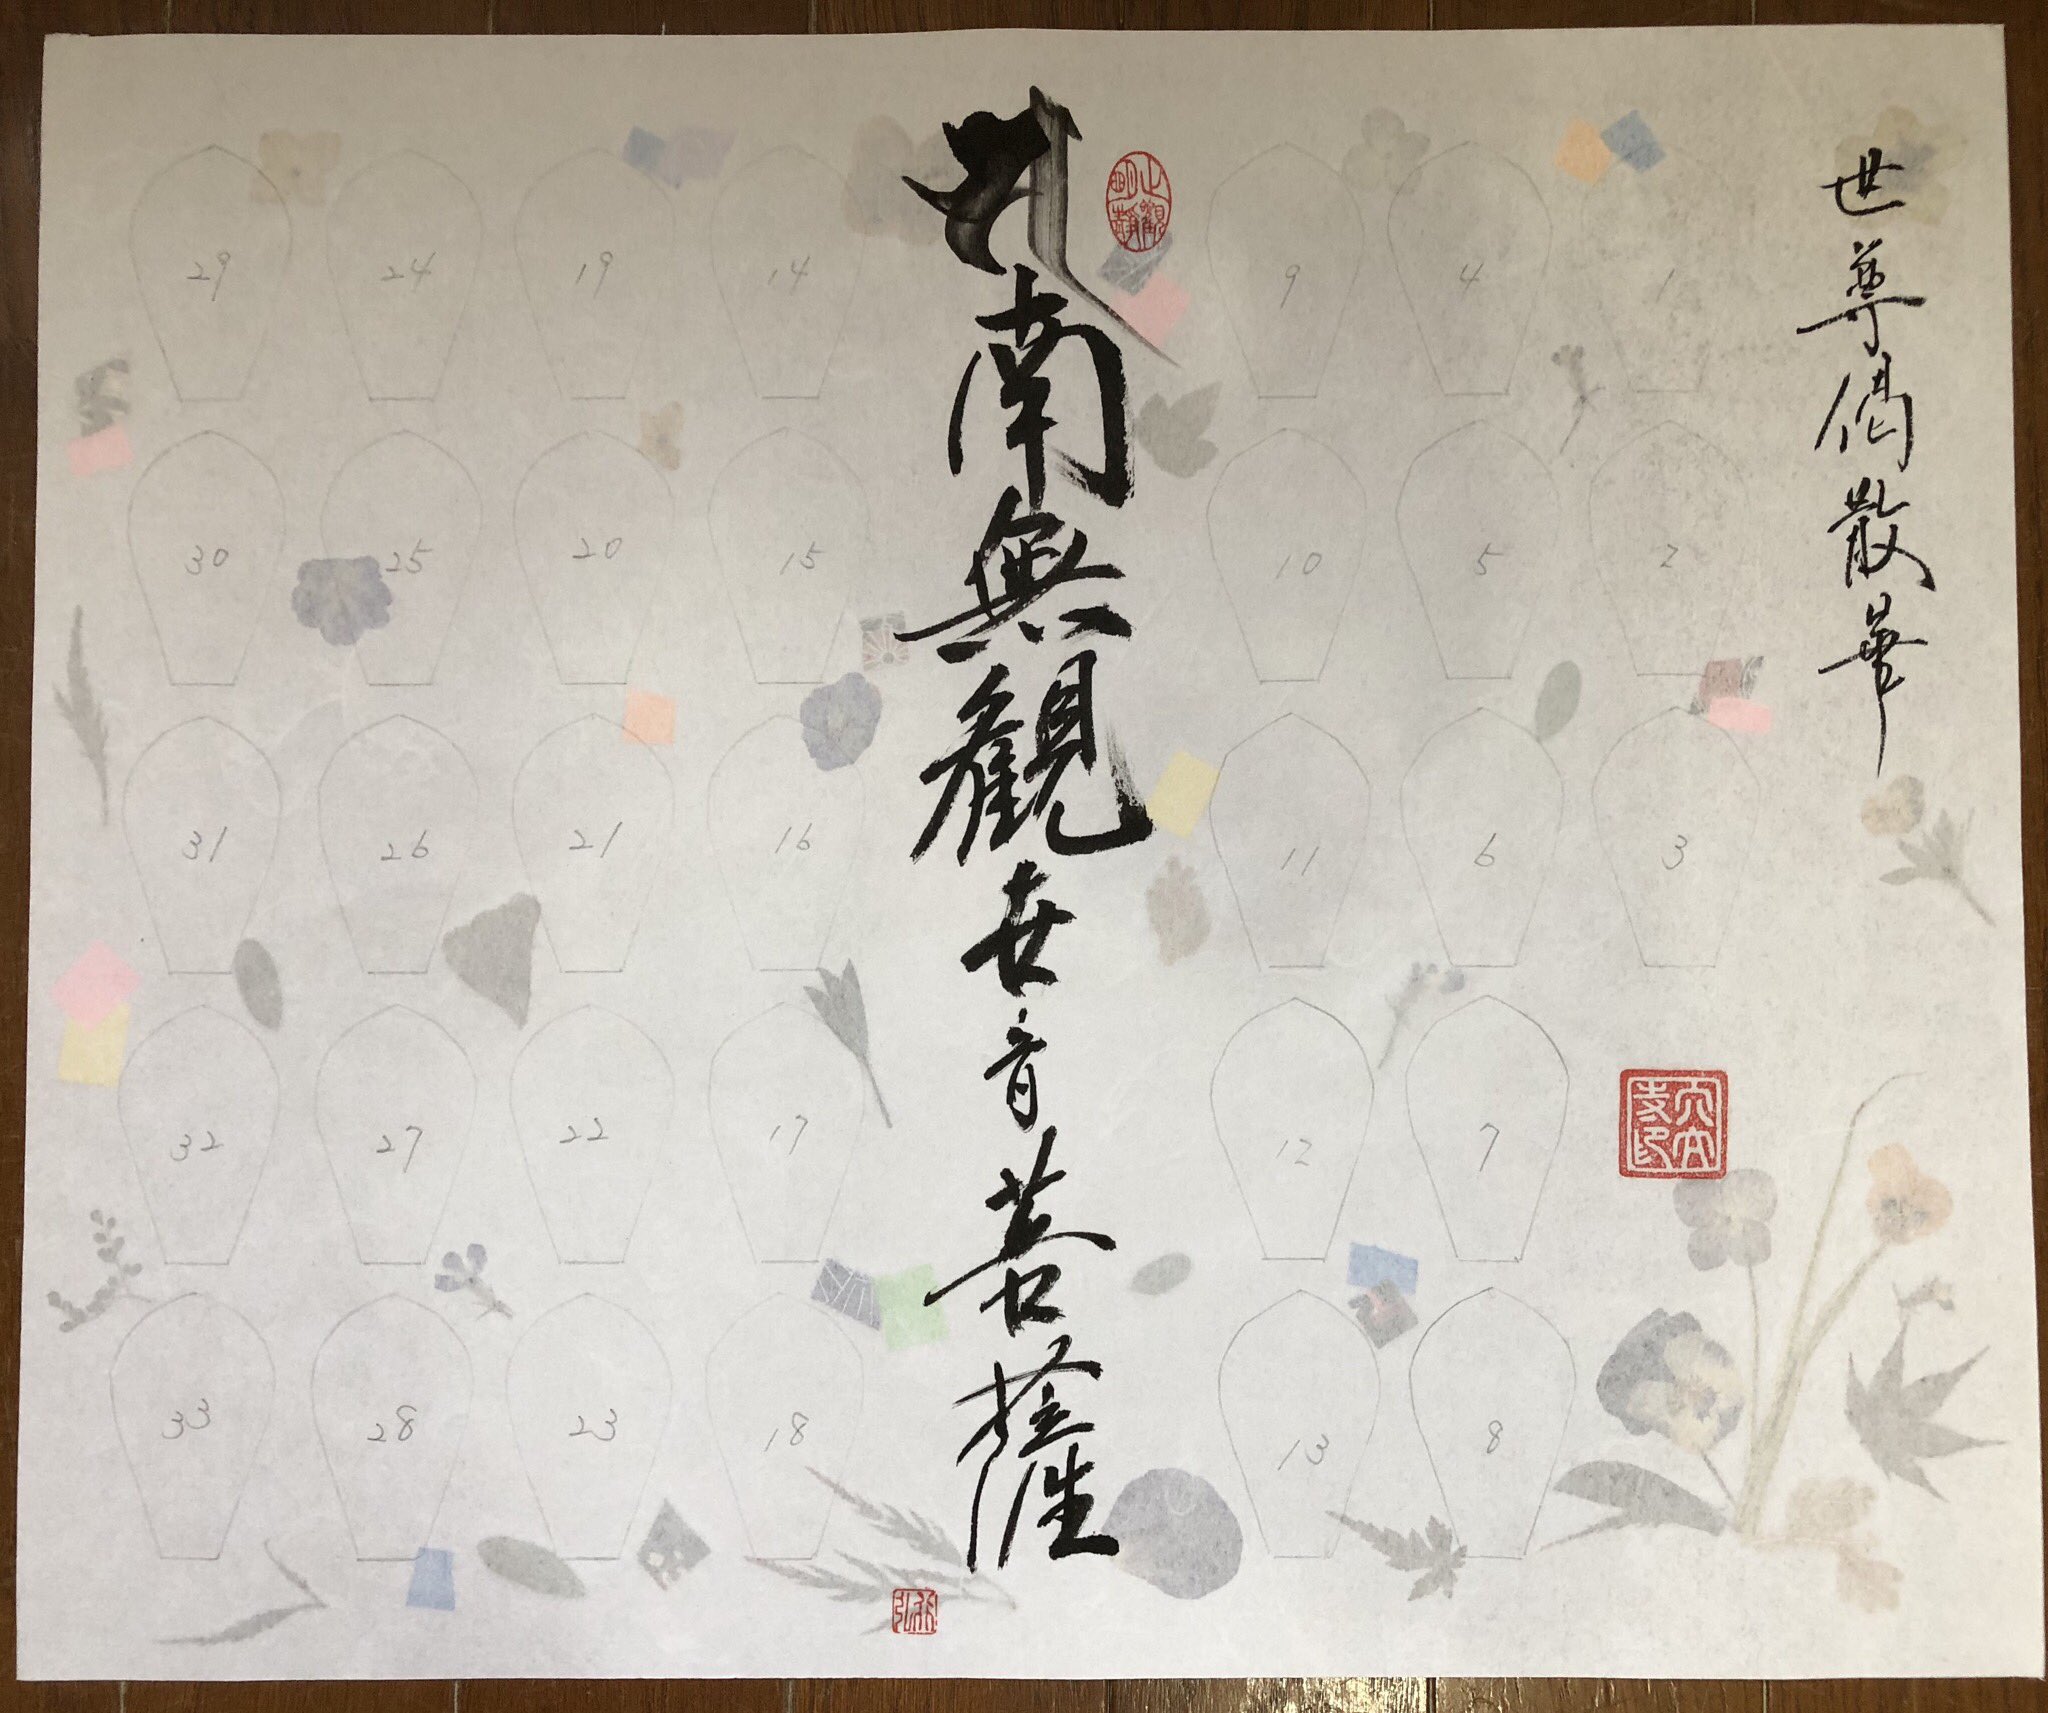 世尊偈散華
1
2
3
4
5
6
7
8
9
10
11
12
13
止觀明靜
南無觀世音菩薩
14
15
16
17
18
19
20
21
22
23
24
25
26
27
28
29
30
31
32
33